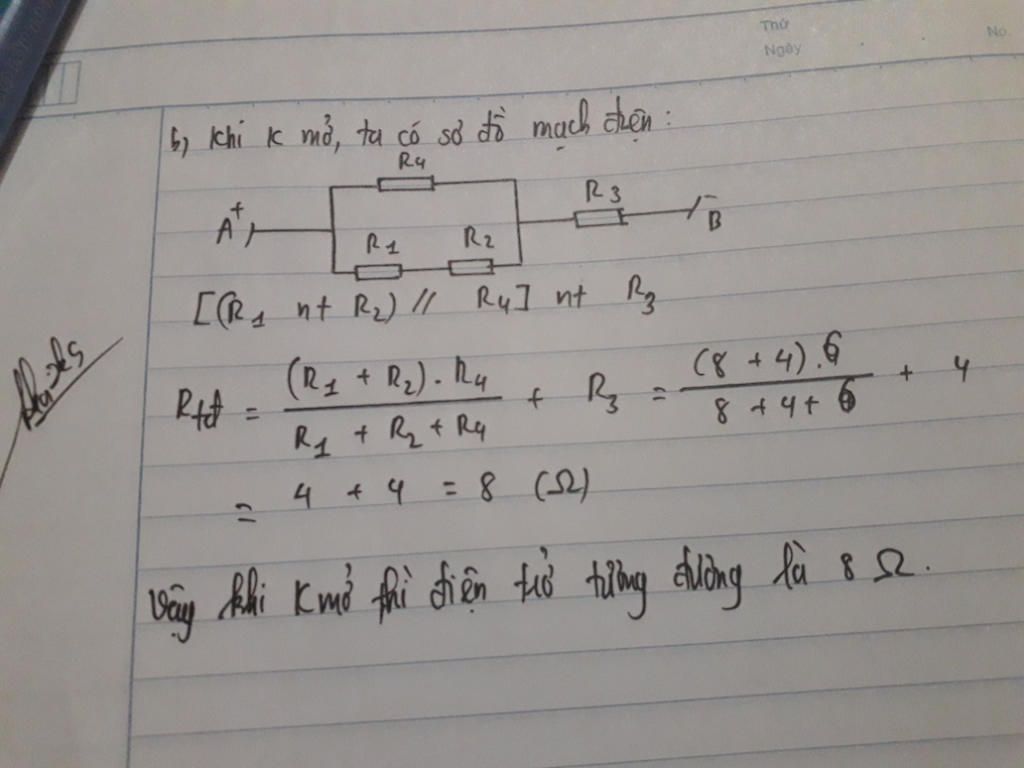 Thứ
Ngày
No.
b, Khi K mở, ta có sơ đồ mạch điện:
R4
A + R3 - B
R1 R2
[(R1 nt R2) // R4] nt R3
Rtđ = (R1 + R2) . R4 / R1 + R2 + R4 + R3 = (8 + 4) . 6 / 8 + 4 + 6 + 4
= 4 + 4 = 8 (Ω)
Vậy khi K mở thì điện trở tương đương là 8 Ω.